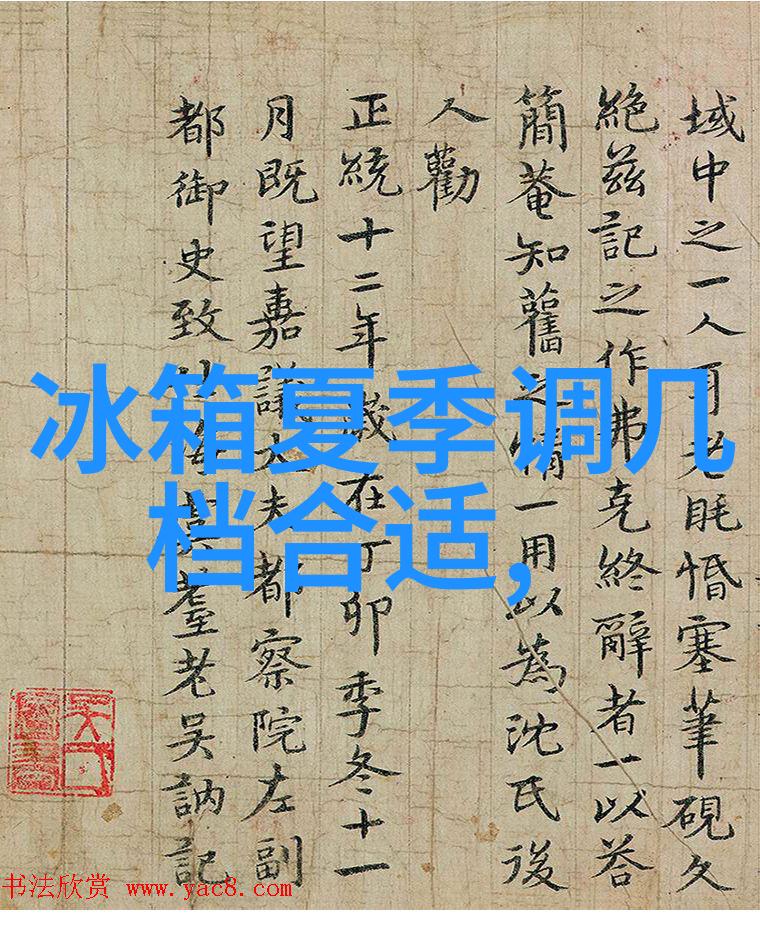 域中之一人耳老眊惛塞筆硯久
絶茲記之作弗克終辭者一以荅
簡菴知舊之情一用以為沈氏後
人勸
正統十二年歲在丁卯季冬十一
月既望嘉議大夫都察院左副
都御史致仕海虞耋老吴訥記
冰箱夏季调几
档合适,
书法欣赏 www.yac8.com